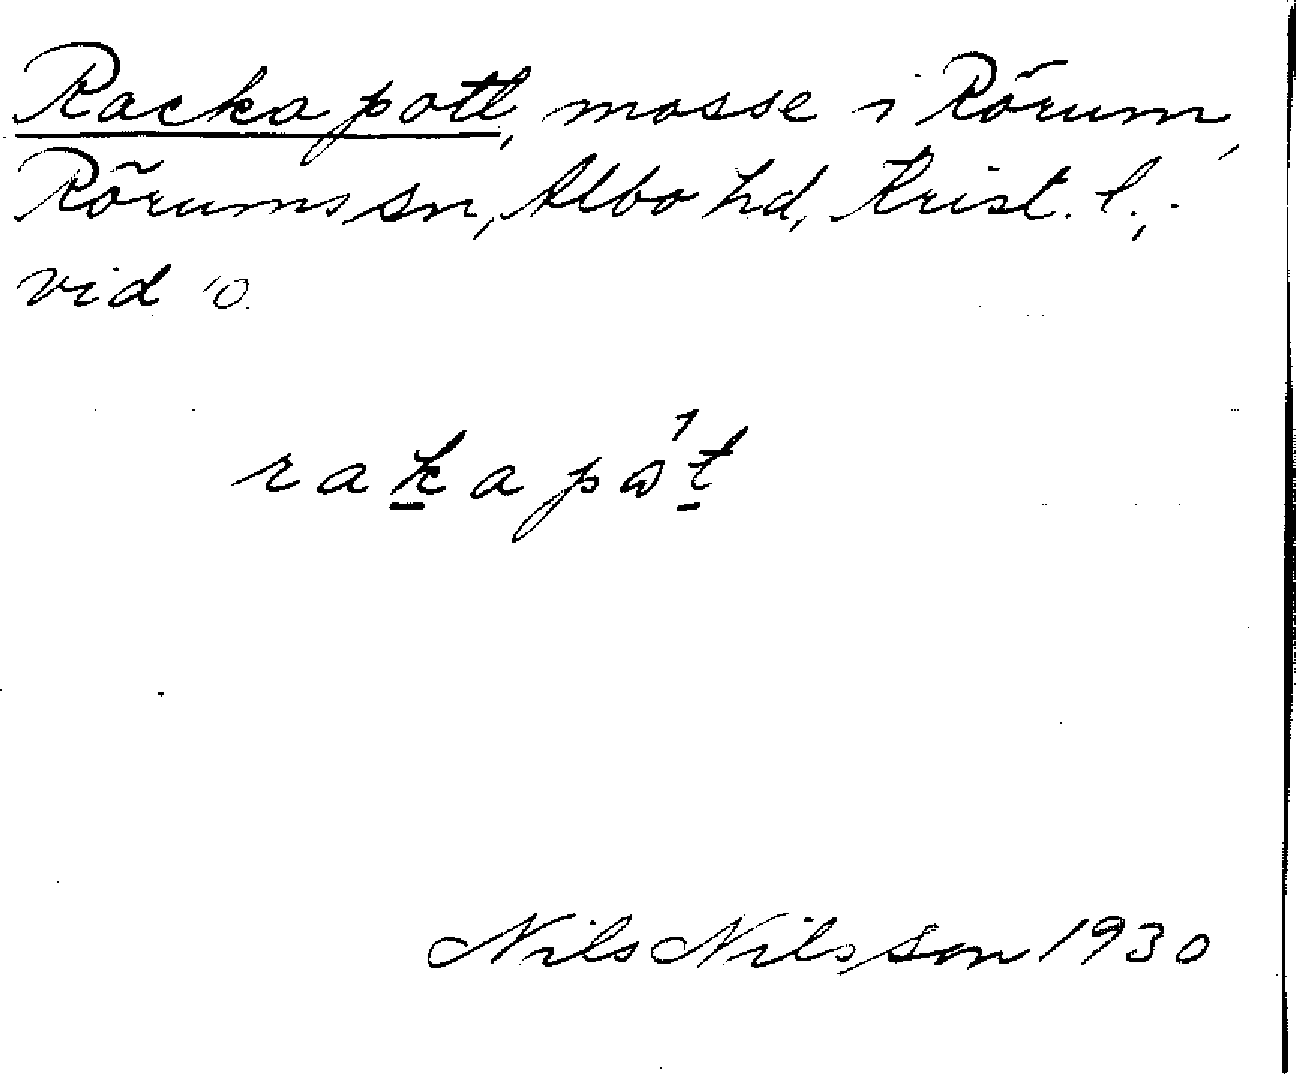 Racka pott, mosse i Rörum,
Rörums sn, Albo hd, Krist. l.,
vid
rakapɷ̂t
Nils Nilsson 1930